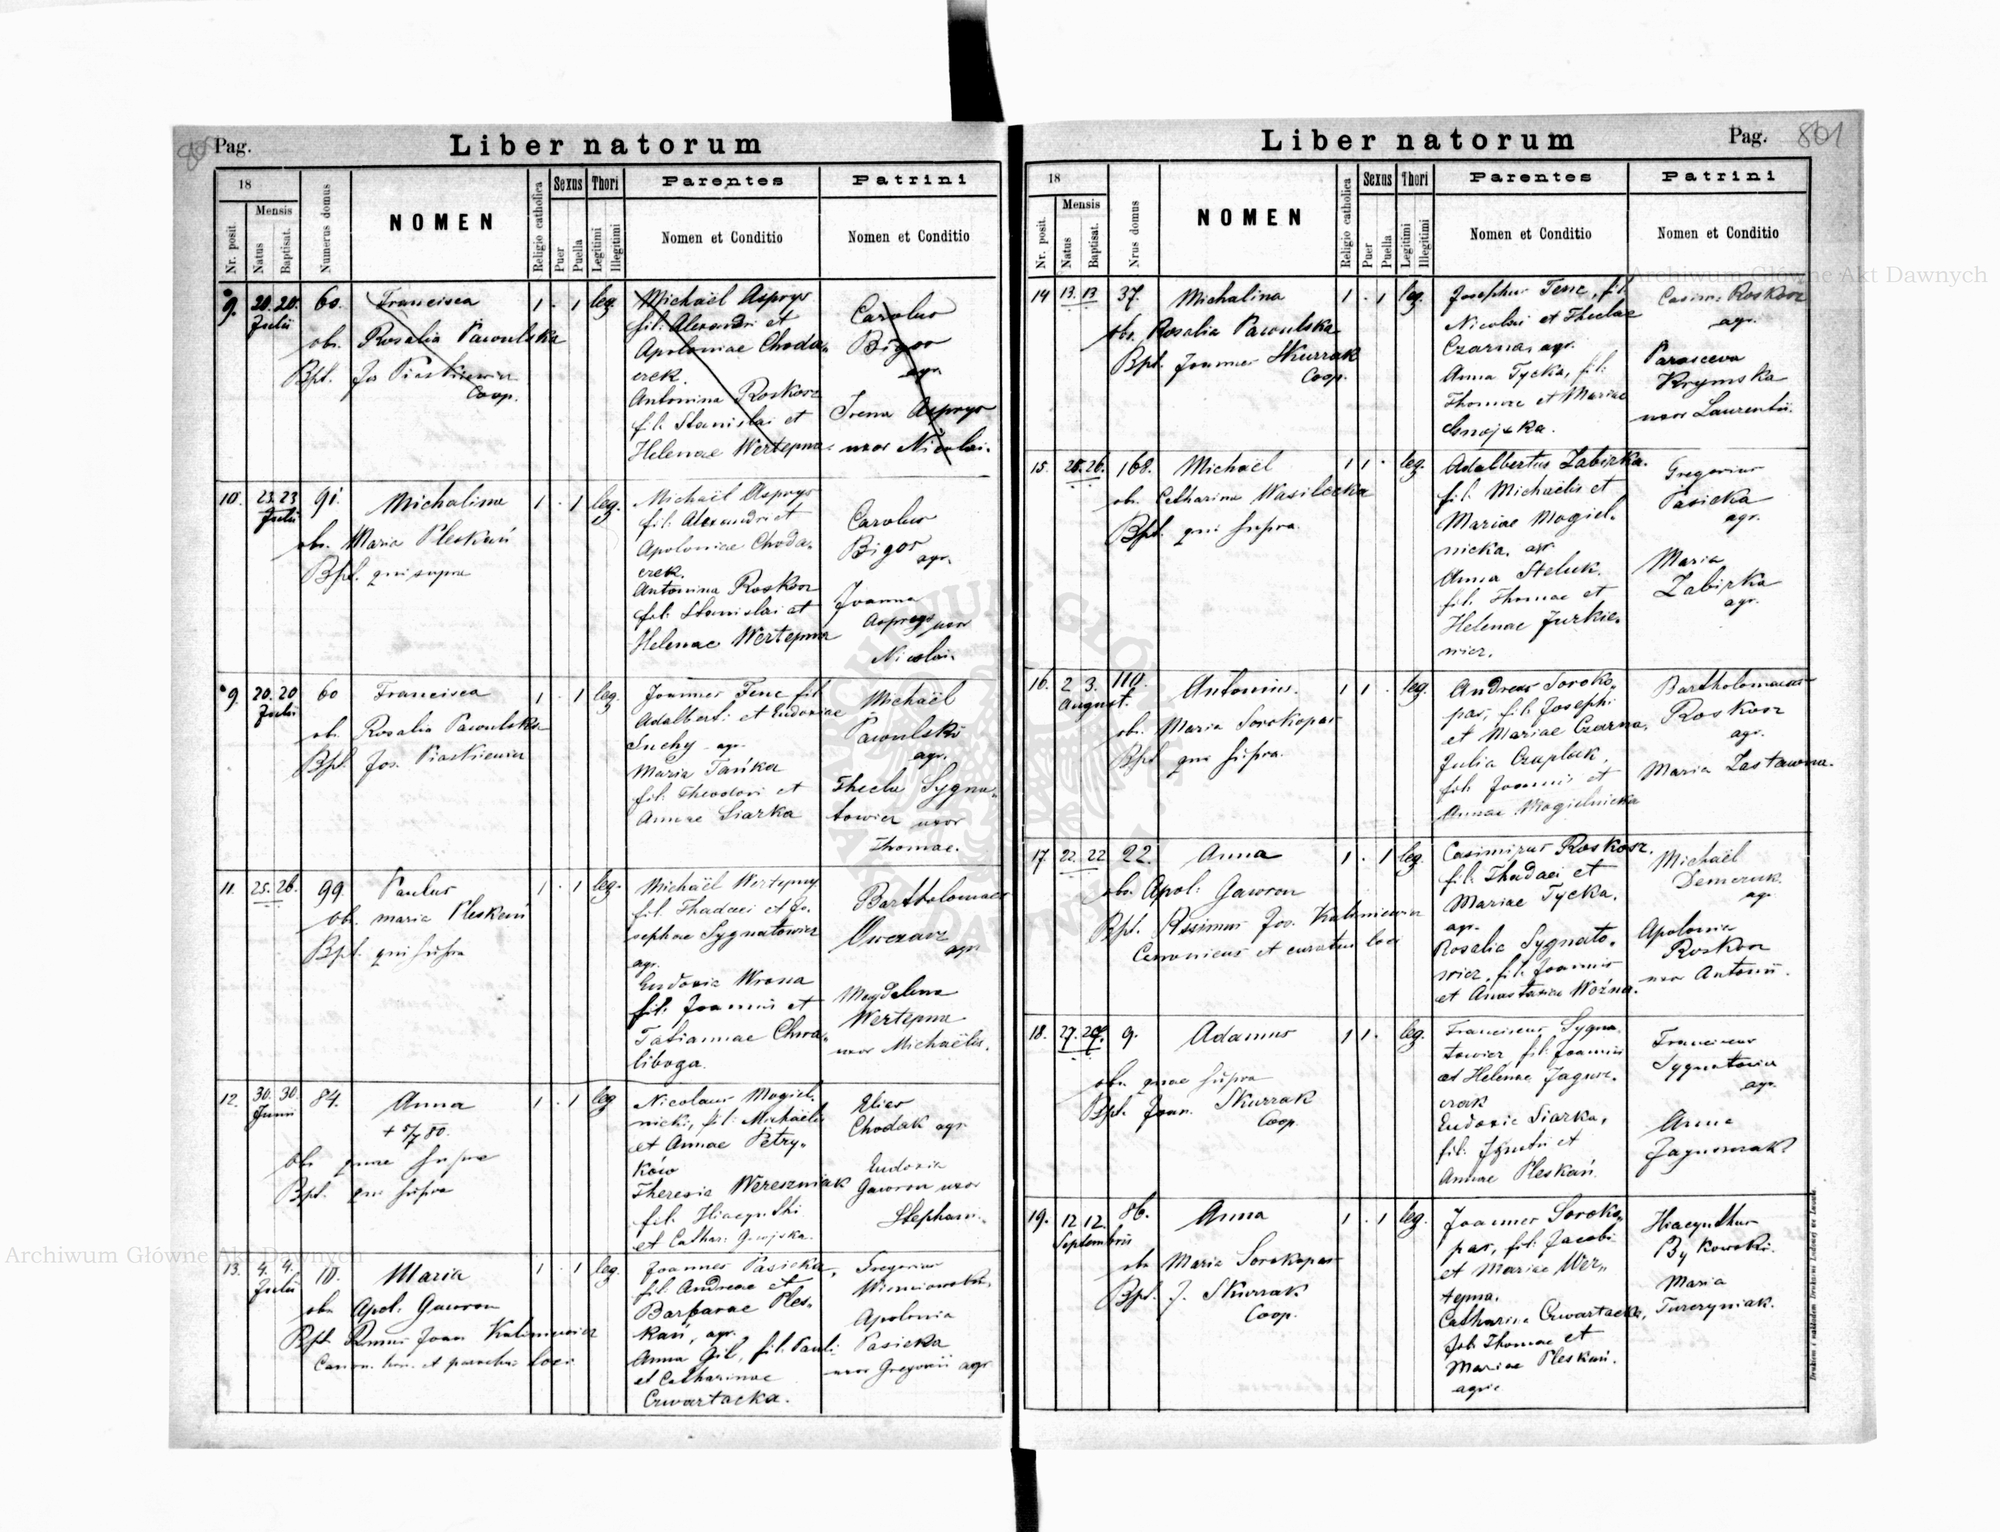 Pag.
Liber natorum
18
Mensis
Nr. posit.
Natus
Baptisat.
Numerus domus
NOMEN
Religio catholica
Sexus
Puer
Puella
Thori
Legitimi
Illegitimi
Parentes
Nomen et Conditio
Patrini
Nomen et Conditio
9. 20. 20. Julii
60.
Francisca
obs. Rosalia Pawulska
Bpt. Jos Piaskiewicz
Coop.
1 . 1 leg
Michaël Asprys
fil. Alexandri et
Apoloniae Choda„
czek.
Antonina Roskosz
fil. Stanislai et
Helenae Wertepna
Carolus
Bigos
agr.
Irena Asprys
uxor Nicolai.
10. 23. 23 Julii
91.
Michalina
obs. Maria Pleskań
Bpt. qui supra
1 . 1 leg.
Michaël Asprys
fil. Alexandri et
Apoloniae Choda„
czek.
Antonina Roskosz
fil. Stanislai et
Helenae Wertepna
Carolus
Bigos
agr.
Joanna
Asprys uxor
Nicolai.
9. 20. 20 Julii
60
Francisca
obs. Rosalia Pawulska
Bpt. Jos. Piaskiewicz
1 . 1 leg.
Joannes Tenc fil.
Adalberti et Eudoxiae
Suchy agr.
Maria Tańka
fil. Theodori et
Annae Siarka
Michaël
Pawulski
agr.
Thecla Sygna„
towicz uxor
Thomae.
11. 25. 26.
99.
Paulus
obs. Maria Pleskań
Bpt. qui supra
1 . 1 leg.
Michaël Wertepny
fil. Thadaei et Jo„
sephae Sygnatowicz
agr.
Eudoxia Wrona
fil. Joannis et
Tatiannae Chwa„
liboga.
Bartholomaeus
Owczarz
agr.
Magdalena
Wertepna
uxor Michaëlis.
12. 30. 30. Junii
84.
Anna
+ 5/7 80.
obs quae supra
Bpt. qui supra
1 . 1 leg
Nicolaus Mogiel„
nicki, fil. Michaëlis
et Annae Petry„
ków
Theresia Wereszniak
fil. Hiacynthi
et Cathar. Gnojska.
Elias
Chodak agr.
Eudoxia
Gawron uxor
Stephani.
13. 4. 4. Julii
10.
Maria
obs. Apol. Gawron
Bpt. Rmus Joan Kaliniewicz
Canon. hon. et parochus loci
1 . 1 leg.
Joannes Pasieka,
fil. Andreae et
Barbarae Ples„
kań, agr.
Anna Gil, fil. Pauli
et Catharinae
Czwartacka.
Gregorius
Apolonia
Pasieka
uxor Gregorii agr
Liber natorum
Pag. 801
18
Mensis
Nr. posit.
Natus
Baptisat.
Nrus domus
NOMEN
Religio catholica
Sexus
Puer
Puella
Thori
Legitimi
Illegitimi
Parentes
Nomen et Conditio
Patrini
Nomen et Conditio
14 13. 13
37.
Michalina
obs. Rosalia Pawulska
Bpt. Joannes Skurzak
Coop.
1 . 1 leg.
Josephus Tenc, fil.
Nicolai et Theclae
Czarna, agr.
Anna Tycka, fil.
Thomae et Mariae
Gnojska.
Casim. Roskosz
agr.
Parasceva
Krymska
uxor Laurentii.
15. 25. 26.
168.
Michaël
obs. Catharina Wasilecka
Bpt. qui supra.
1 1 . leg.
Adalbertus Zabirka.
fil. Michaëlis et
Mariae Mogiel„
nicka. agr.
Anna Steluk.
fil. Thomae et
Helenae Jurkie„
wicz.
Gregorius
Pasieka
agr.
Maria
Zabirka
agr.
16. 2 3. August.
110.
Antonius.
obs. Maria Sorokopas
Bpt qui supra.
1 1 . leg.
Andreas Soroko„
pas, fil. Josephi
et Mariae Czarna,
Julia Czaplock,
fil. Joannis et
Annae Mogielnicka
Bartholomaeus
Roskosz
agr.
Maria Zastawna.
17. 22. 22
22.
Anna
obs. Apol. Gawron
Bpt. Rssimus Jos. Kaliniewicz
Canonicus et curatus loci
1 . 1 leg
Casimirus Roskosz.
fil. Thadaei et
Mariae Tycka.
agr.
Rosalia Sygnato„
wicz, fil. Joannis
et Anastasiae Woźna.
Michaël
Demczuk.
agr.
Apolonia
Roskosz
uxor Antonii.
18. 27. 29.
9.
Adamus
obs. quae supra
Bpt. Joan. Skurzak
Coop.
1 1 . leg.
Franciscus Sygna„
towicz, fil. Joannis
et Helenae Jagusz„
czak
Eudoxia Siarka,
fil. Ignatii et
Annae Pleskań.
Franciscus
Sygnatowicz
agr.
Anna
Jaguszczak
19. 12 12. Septembris
86.
Anna
obs Maria Sorokopas
Bpt. J. Skurzak
Coop.
1 . 1 leg.
Joannes Soroko„
pas, fil. Jacobi
et Mariae Wer„
tepna.
Catharina Czwartacka,
fil. Thomae et
Mariae Pleskań.
agric
Hiacynthus
Bykowski.
Maria
Turczyniak.
Drukiem i nakładem Drukarni Ludowej we Lwowie.
Archiwum Główne Akt Dawnych
Archiwum Główne Akt Dawnych
ARCHIWUM GŁÓWNE AKT DAWNYCH